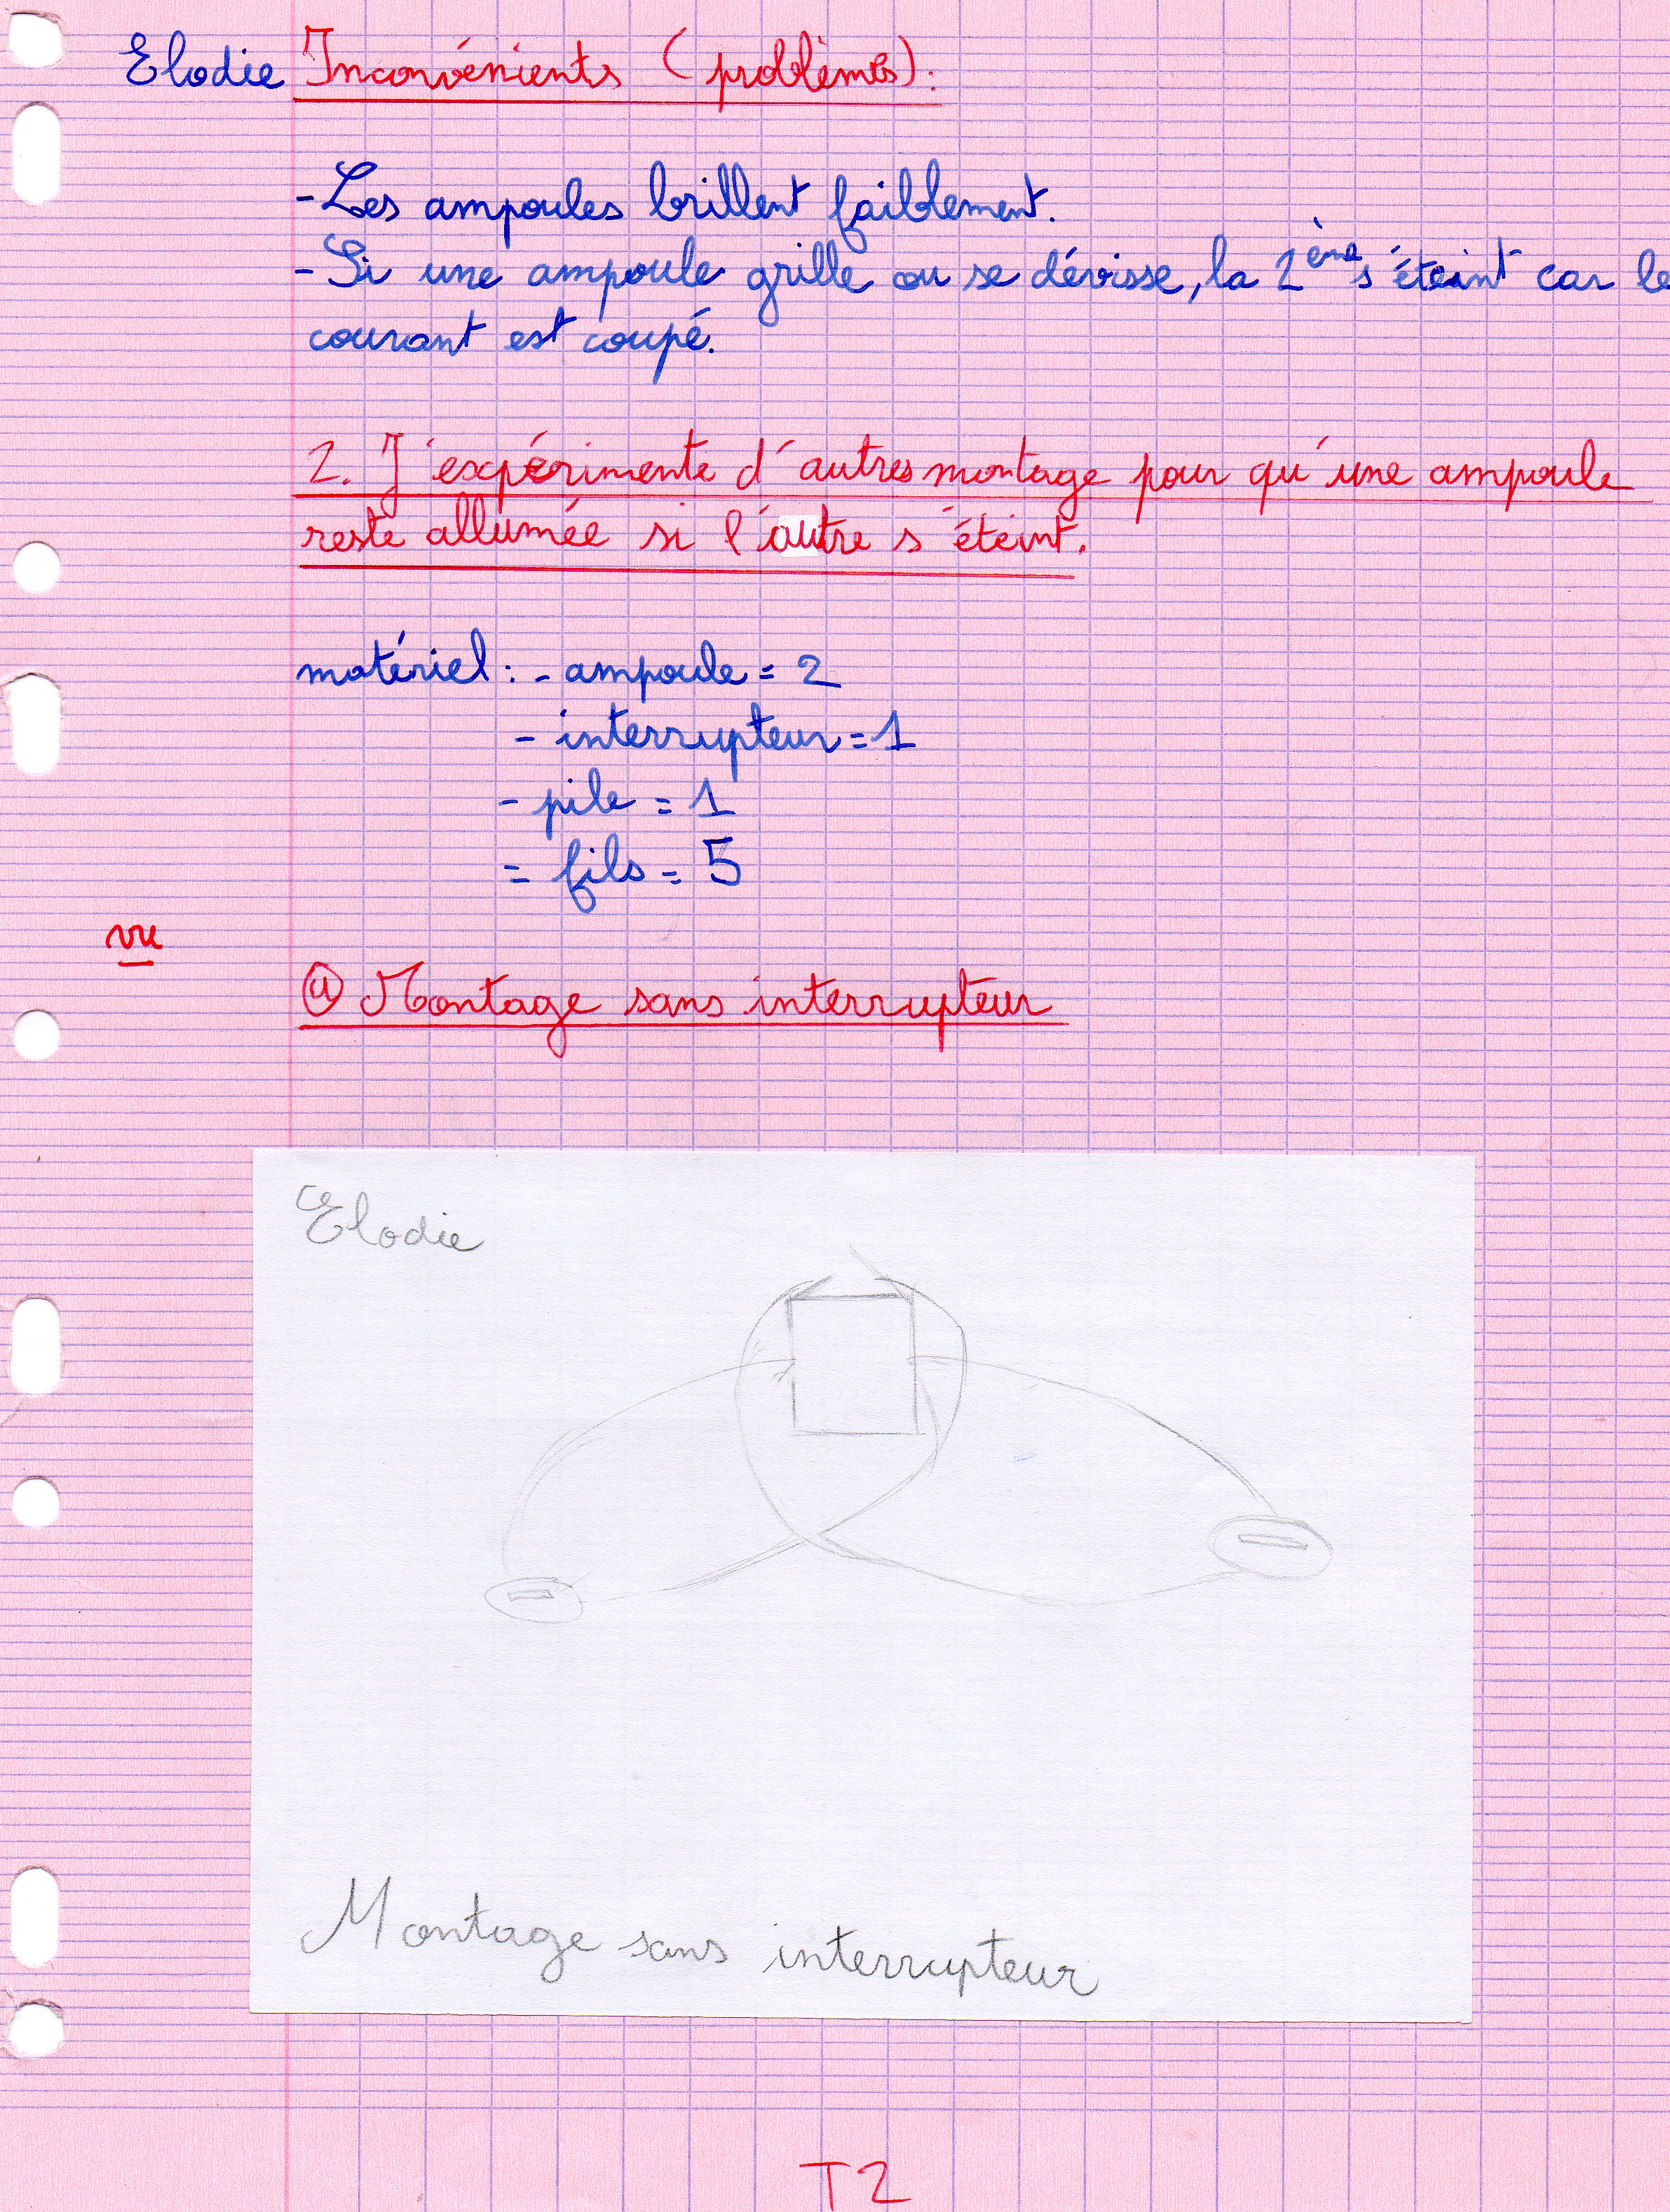 Elodie Inconvénients (problèmes):
- Les ampoules brillent faiblement.
- Si une ampoule grille ou se dévisse, la 2ème s'éteint car le
courant est coupé.
2. J'expérimente d'autres montage pour qu'une ampoule
reste allumée si l'autre s'éteint.
matériel : - ampoule = 2
- interrupteur = 1
- pile = 1
= fils = 5
vu
ⓐ Montage sans interrupteur
Elodie
Montage sans interrupteur
T2